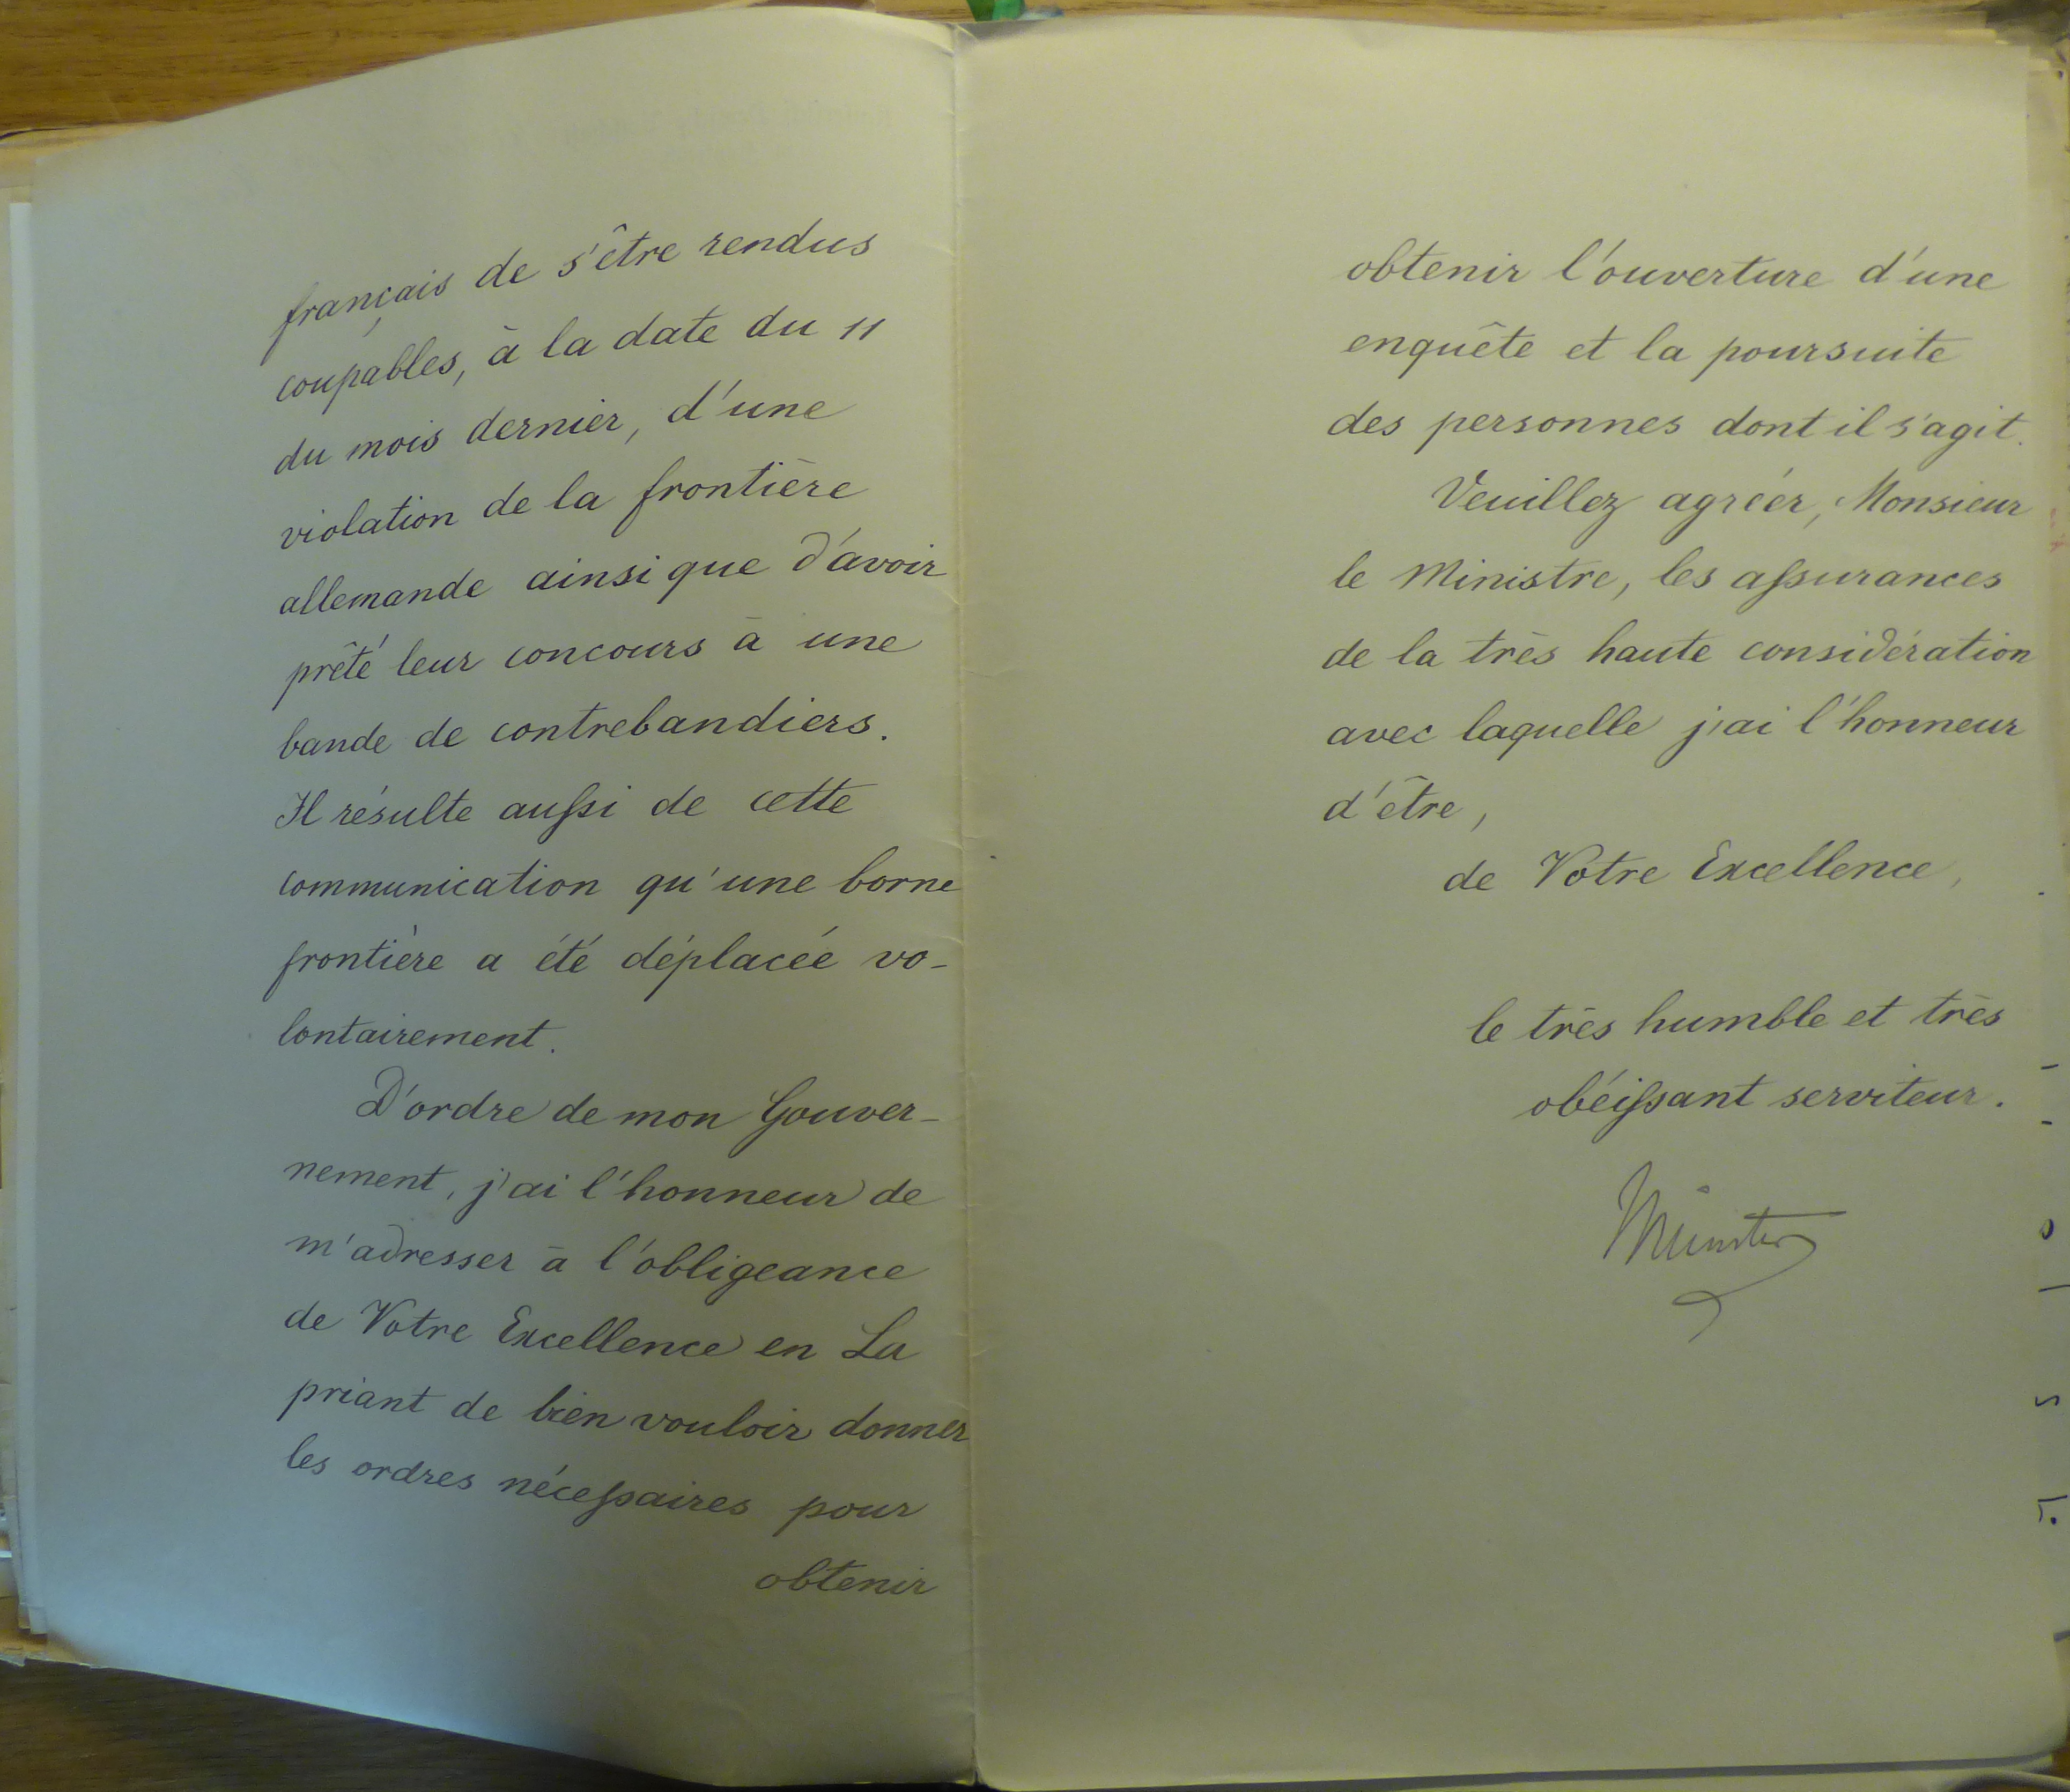 français de s'être rendus
coupables, à la date du 11
du mois dernier, d'une
violation de la frontière
allemande ainsi que d'avoir
prêté leur concours à une
bande de contrebandiers.
Il résulte aussi de cette
communication qu'une borne
frontière a été déplacée vo-
lontairement.
D'ordre de mon Gouver-
nement, j'ai l'honneur de
m'adresser à l'obligeance
de Votre Excellence en La
priant de bien vouloir donner
les ordres nécessaires pour
obtenir
obtenir l'ouverture d'une
enquête et la poursuite
des personnes dont il s'agit.
Veuillez agréer, Monsieur
le Ministre, les assurances
de la très haute considération
avec laquelle j'ai l'honneur
d'être,
de Votre Excellence,
le très humble et très
obéissant serviteur.
Münster